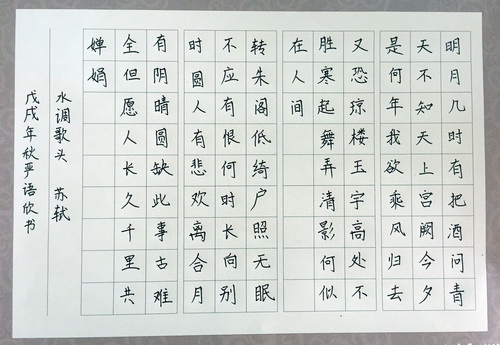 明月几时有把酒问青
天不知天上宫阙今夕
是何年我欲乘风归去
又恐琼楼玉宇高处不
胜寒起舞弄清影何似
在人间
转朱阁低绮户照无眠
不应有恨何时长向别
时圆人有悲欢离合月
有阴晴圆缺此事古难
全但愿人长久千里共
婵娟
水调歌头 苏轼
戊戌年秋严语欣书